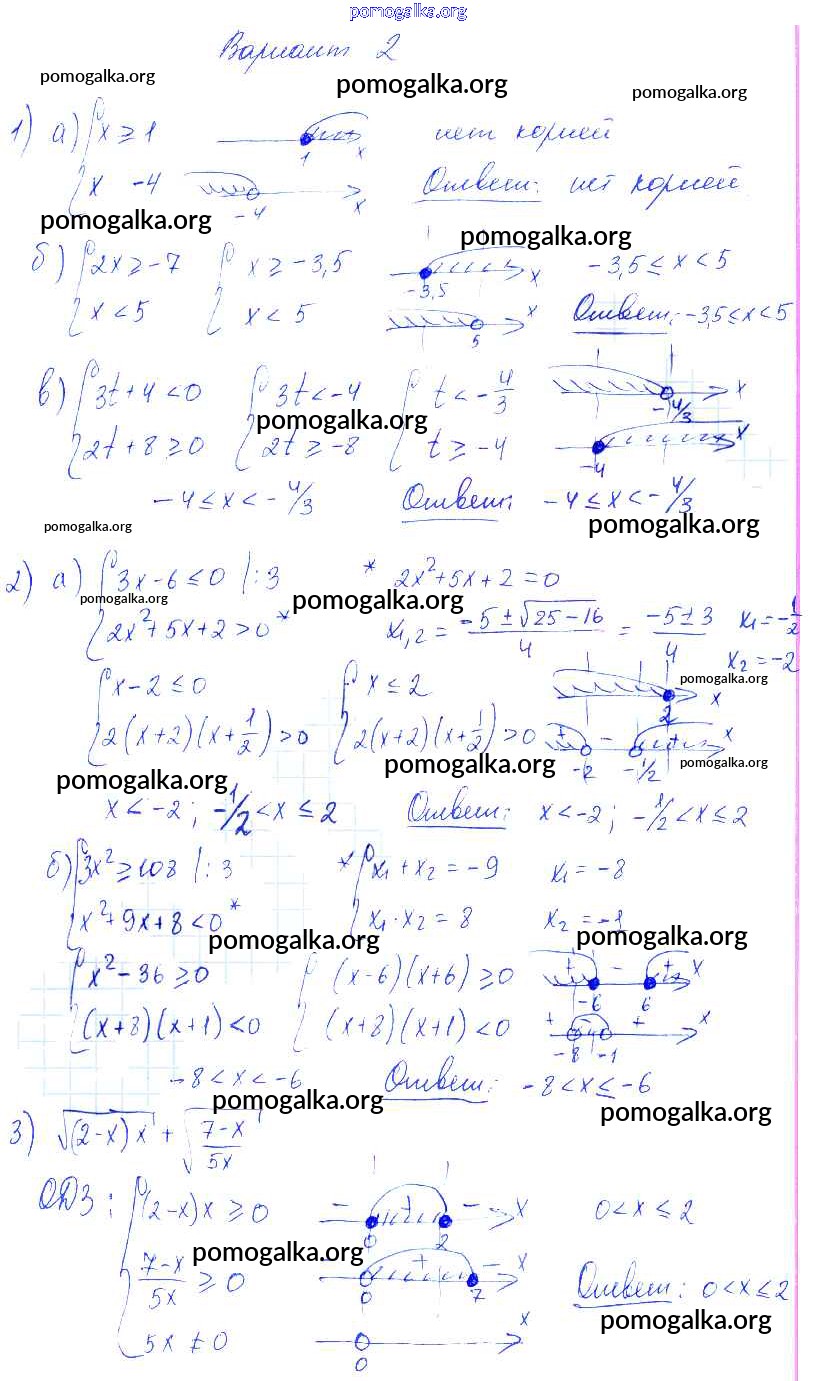 pomogalka.org
Вариант 2
pomogalka.org pomogalka.org pomogalka.org
1) а) { x ≥ 1   1   x   нет корней
{ x   -4   -4   x   Ответ: нет корней
pomogalka.org pomogalka.org
б) { 2x ≥ -7   { x ≥ -3,5   -3,5   x   -3,5 ≤ x < 5
{ x < 5   { x < 5   5   x   Ответ: -3,5 ≤ x < 5
в) { 3t + 4 < 0   { 3t < -4   { t < -4/3   -4/3   x
pomogalka.org
{ 2t + 8 ≥ 0   { 2t ≥ -8   { t ≥ -4   -4   x
-4 ≤ x < -4/3   Ответ: -4 ≤ x < -4/3
pomogalka.org pomogalka.org
2) а) { 3x - 6 ≤ 0 |: 3   * 2x² + 5x + 2 = 0
pomogalka.org pomogalka.org
{ 2x² + 5x + 2 > 0 *   x₁,₂ = (-5 ± √(25 - 16))/4 = (-5 ± 3)/4   x₁ = -1/2
x₂ = -2
pomogalka.org
{ x - 2 ≤ 0   { x ≤ 2   2   x
{ 2(x + 2)(x + 1/2) > 0   { 2(x + 2)(x + 1/2) > 0   + - +   -2   -1/2   x
pomogalka.org pomogalka.org pomogalka.org
x < -2; -1/2 < x ≤ 2   Ответ: x < -2; -1/2 < x ≤ 2
б) { 3x² ≥ 108 |: 3   * { x₁ + x₂ = -9   x₁ = -8
{ x² + 9x + 8 < 0 *   { x₁ · x₂ = 8   x₂ = -1
pomogalka.org pomogalka.org
{ x² - 36 ≥ 0   { (x - 6)(x + 6) ≥ 0   + - +   -6   6   x
{ (x + 8)(x + 1) < 0   { (x + 8)(x + 1) < 0   + - +   -8   -1   x
-8 < x < -6   Ответ: -8 < x ≤ -6
pomogalka.org pomogalka.org
3) √((2 - x) x) + √((7 - x)/5x)
ОДЗ: { (2 - x) x ≥ 0   - + -   0   2   x   0 < x ≤ 2
pomogalka.org
{ (7 - x)/5x ≥ 0   - + -   0   7   x   Ответ: 0 < x ≤ 2
pomogalka.org
{ 5x ≠ 0   0   x